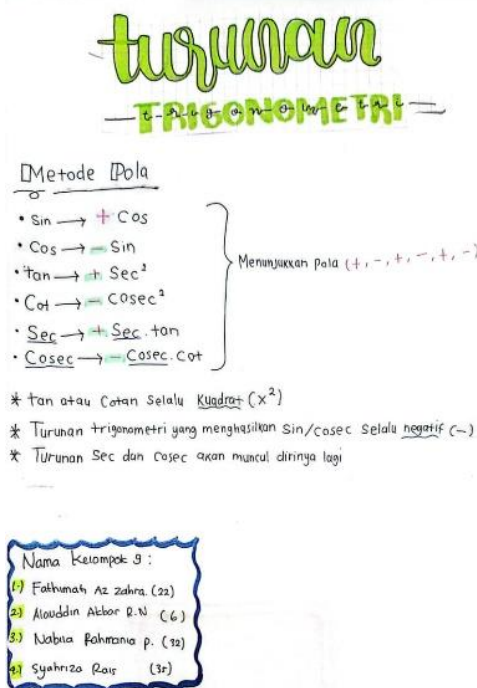 turunan
TRIGONOMETRI
t-r-i-g-o-n-o-m-e-t-r-i
Metode Pola
• Sin → + Cos
• Cos → - Sin
• tan → + Sec²
• Cot → - Cosec²
• Sec → + Sec.tan
• Cosec → - Cosec.Cot
Menunjukkan Pola (+,-,+,-,+,-)
* tan atau Cotan Selalu Kuadrat (x²)
* Turunan trigonometri yang menghasilkan Sin/cosec Selalu negatif (-)
* Turunan Sec dan Cosec akan muncul dirinya lagi
Nama Kelompok 9 :
1.) Fathimah Az Zahra (22)
2.) Alauddin Akbar R.N (6)
3.) Nabila Rahmania P. (32)
4.) Syahriza Rais (35)